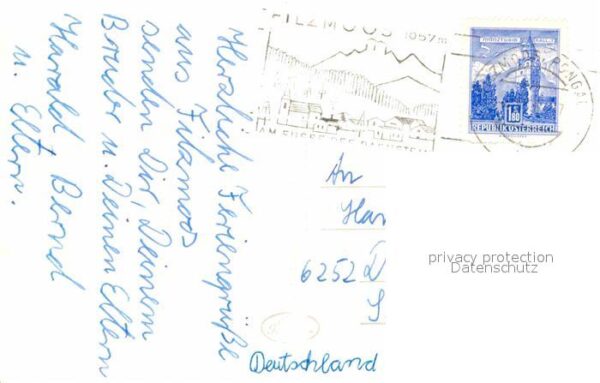 Herzliche Feriengrüße
aus Filzmoos
senden Dir, Deinem
Bruder u. Deinen Eltern
Harald Bernd
u. Eltern.
FILZMOOS 1057m
AM FUSSE DES DACHSTEIN
MÜNZTURM HALL i. T.
S
1.80
REPUBLIK ÖSTERREICH
An
Har
6252 D
S
Deutschland
privacy protection
Datenschutz